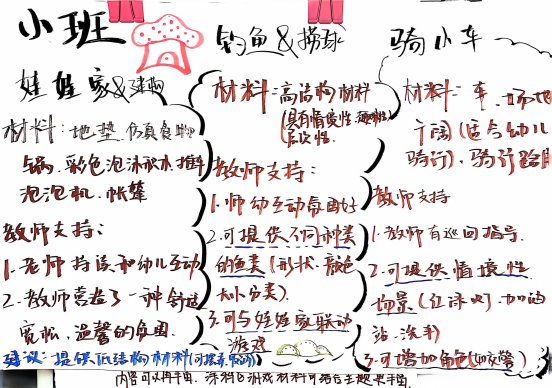 小班
娃娃家&建构
材料:地垫、仿真食物
锅、彩色泡沫积木推车
泡泡机、帐篷
教师支持:
1.老师持续和幼儿互动
2.教师营造了一种舒适
宽松、温馨的氛围
建议:提供低结构材料
钓鱼&捞球
材料:高结构材料
(具有情境性、趣味性
层次性
教师支持:
1.师幼互动氛围好
2.可提供不同种类
的鱼类(形状、颜色
大小分类)
3.可与娃娃家联动
游戏
骑小车
材料:车、场地
开阔(适合幼儿
骑行)、骑行路
教师支持
1.教师有巡回指导
2.可提供情境性
场景(红绿灯、加油
站、洗车)
3.可增加角色(如交警)
内容可以再丰富、涂鸦区游戏材料可结合主题来丰富